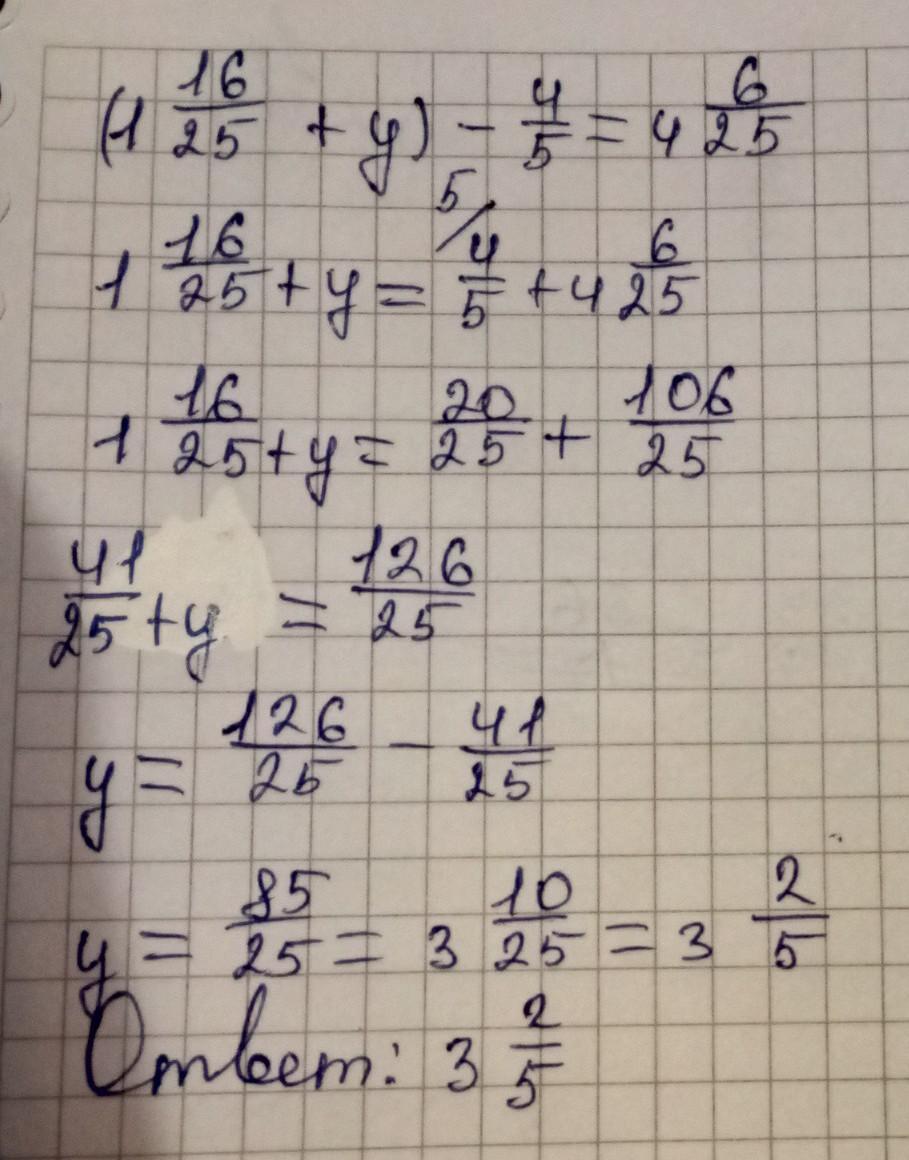 (1 16/25 + y) - 4/5 = 4 6/25
5/
1 16/25 + y = 4/5 + 4 6/25
1 16/25 + y = 20/25 + 106/25
41/25 + y = 126/25
y = 126/25 - 41/25
y = 85/25 = 3 10/25 = 3 2/5
Ответ: 3 2/5